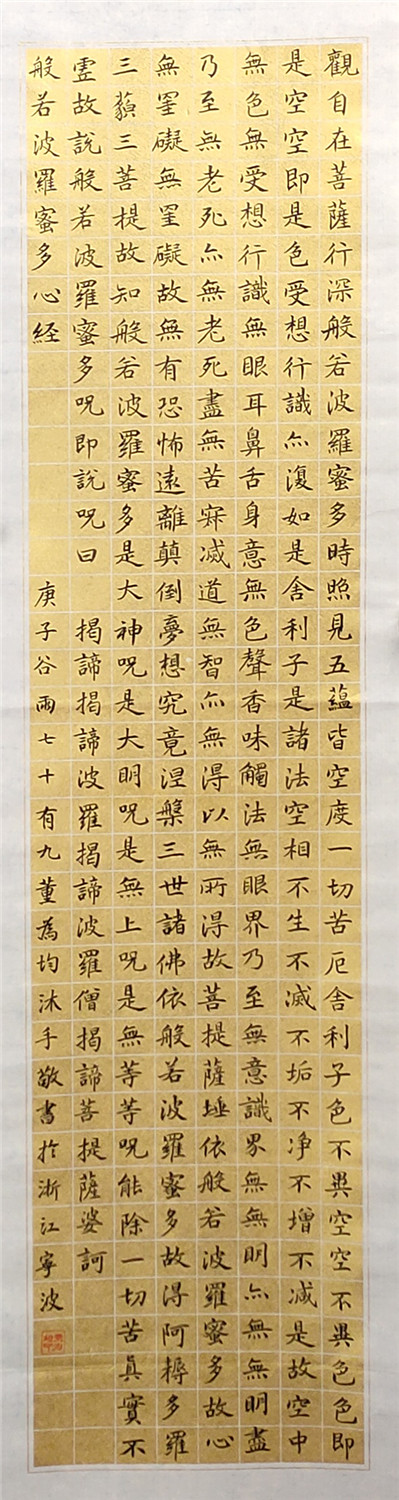 觀自在菩薩行深般若波羅蜜多時照見五蘊皆空度一切苦厄舍利子色不異空空不異色色即
是空空即是色受想行識亦復如是舍利子是諸法空相不生不滅不垢不净不增不減是故空中
無色無受想行識無眼耳鼻舌身意無色聲香味觸法無眼界乃至無意識界無無明亦無無明盡
乃至無老死亦無老死盡無苦寂滅道無智亦無得以無所得故菩提薩埵依般若波羅蜜多故心
無罣礙無罣礙故無有恐怖遠離顛倒夢想究竟涅槃三世諸佛依般若波羅蜜多故得阿耨多羅
三藐三菩提故知般若波羅蜜多是大神呪是大明呪是無上呪是無等等呪能除一切苦真實不
虛故說般若波羅蜜多呪即說呪曰 揭諦揭諦波羅揭諦波羅僧揭諦菩提薩婆訶
般若波羅蜜多心経 庚子谷雨七十有九董為均沐手敬書於浙江寧波